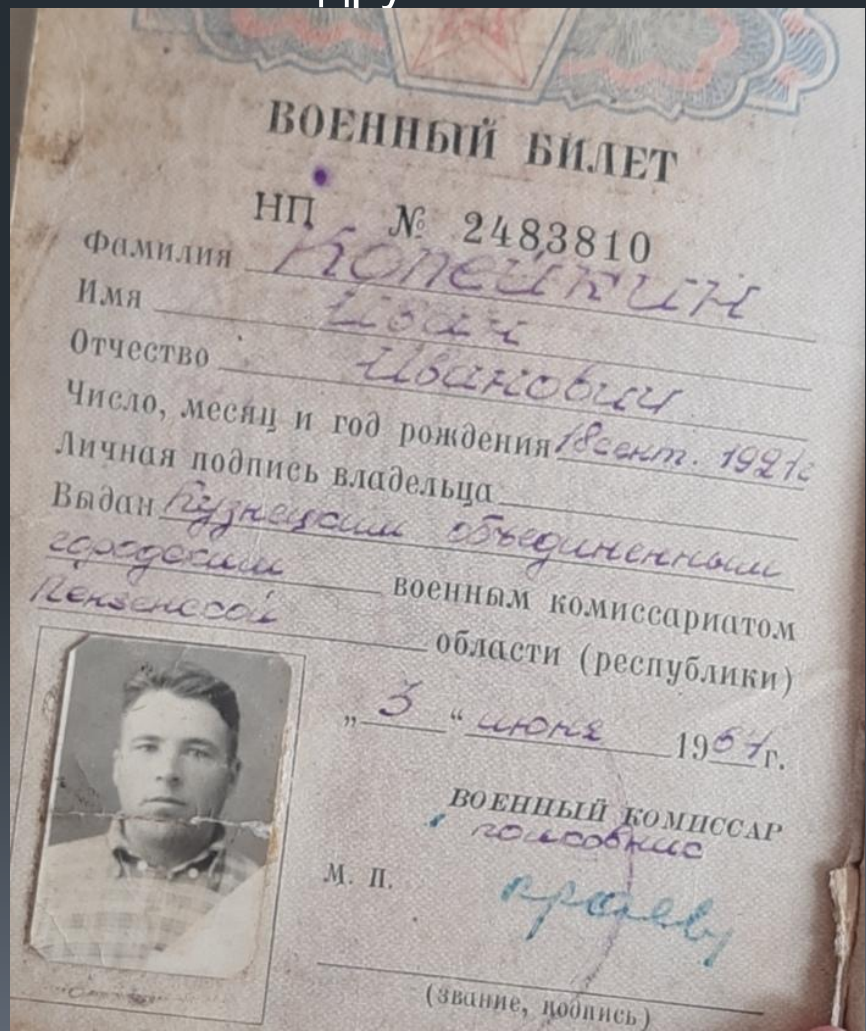 ВОЕННЫЙ БИЛЕТ
НП № 2483810
Фамилия Копейкин
Имя Иван
Отчество Иванович
Число, месяц и год рождения 18 сент. 1921г
Личная подпись владельца
Выдан Кузнецким объединенным
городским военным комиссариатом
Пензенской области (республики)
„ 3 “ июня 1964г.
ВОЕННЫЙ КОМИССАР
М. П.
(звание, подпись)